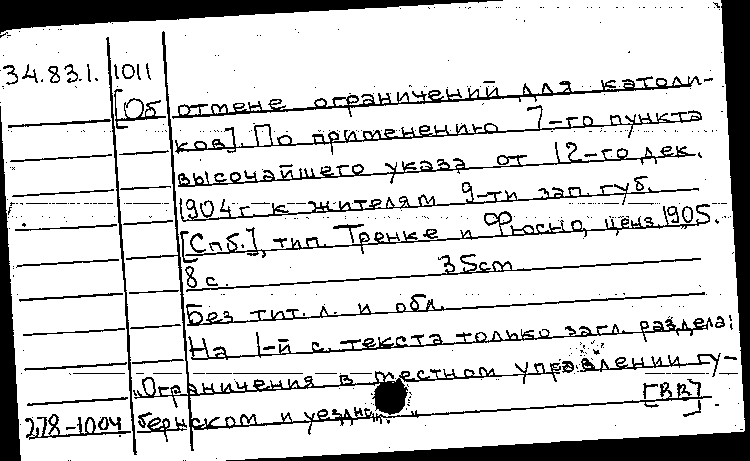 34.83.1. 1011
[Об отмене ограничений для католи-
ков]. По применению 7-го пункта
высочайшего указа от 12-го дек.
1904 г. к жителям 9-ти зап. губ.
[Спб.], тип. Тренке и Фюсно, ценз. 1905.
8 с. 35 cm
Без тит. л. и обл.
На 1-й с. текста только загл. раздела:
„Ограничения в местном управлении гу-
278-1004 бернском и уездном." [ВВ]